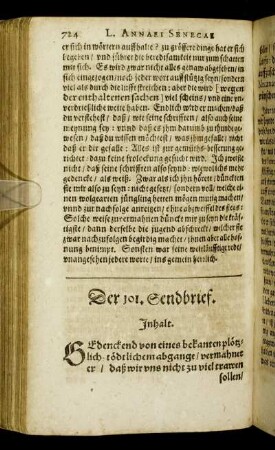 724 L. ANNAEI SENECAE
er sich in wörten auffhalte? zu grössere dinge hat er sich
begeben / vnd führet die beredsamkeit nur zum schatten
mit sich. Es wird zwar nicht alles genaw abgesehen / in
sich eingezogen / noch jeder wort auffstützig seyn / sondern
viel als durch die lufft streichen: aber die wird [wegen
der enthaltenen sachen] viel scheins / vnd eine vn-
verdrießliche weite haben. Endlich wird er machen daß
du verstehest / daß / wie sein schreiben / also auch seine
meynung sey: vnnd daß es ihm darumb zu thunde ge-
wesen / daß du wissen möchtest / was ihm gefalle / nicht
daß er dir gefalle: Alles ist zur gemüths-besserung ge-
richtet / dazu keine frolockung gesucht wird. Ich zweifle
nicht / daß seine schrifften also seynd / wiewol ichs mehr
gedencke / als weiß. Zwar als ich ihn hörete / dünckten
sie mir also zu seyn: nicht gesetzt / sondern voll / welche ei-
nen wolgearten jüngling hetten mögen mutig machen /
vnnd zur nachfolge anreitzen / ohne abzweiffel des siegs:
Solche weise zu vermahnen dünckt mir zu seyn die kräf-
tigste / dann derselbe die jugend abschreckt / welcher sie
zwar nachzufolgen begirdig machet / ihnen aber alle hoff-
nung benimpt. Sonsten war seine weitläufftige red /
vnangesehen jedere worte / ins gemein herrlich.
Der 101. Sendbrief.
Inhalt.
GEdenckend von eines bekanten plötz-
lich-tödtlichem abgange / vermahnet
er / daß wir vns nicht zu viel trawen
sollen /